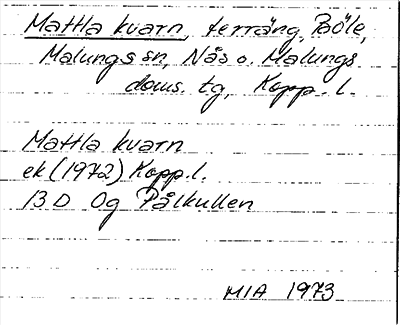 Mattla kvarn, terräng, Böle,
Malungs sn, Nås o. Malungs
doms. tg, Kopp. l.
Mattla kvarn
ek (1972) Kopp. l.
13 D 0g Pålkullen
MIA 1973